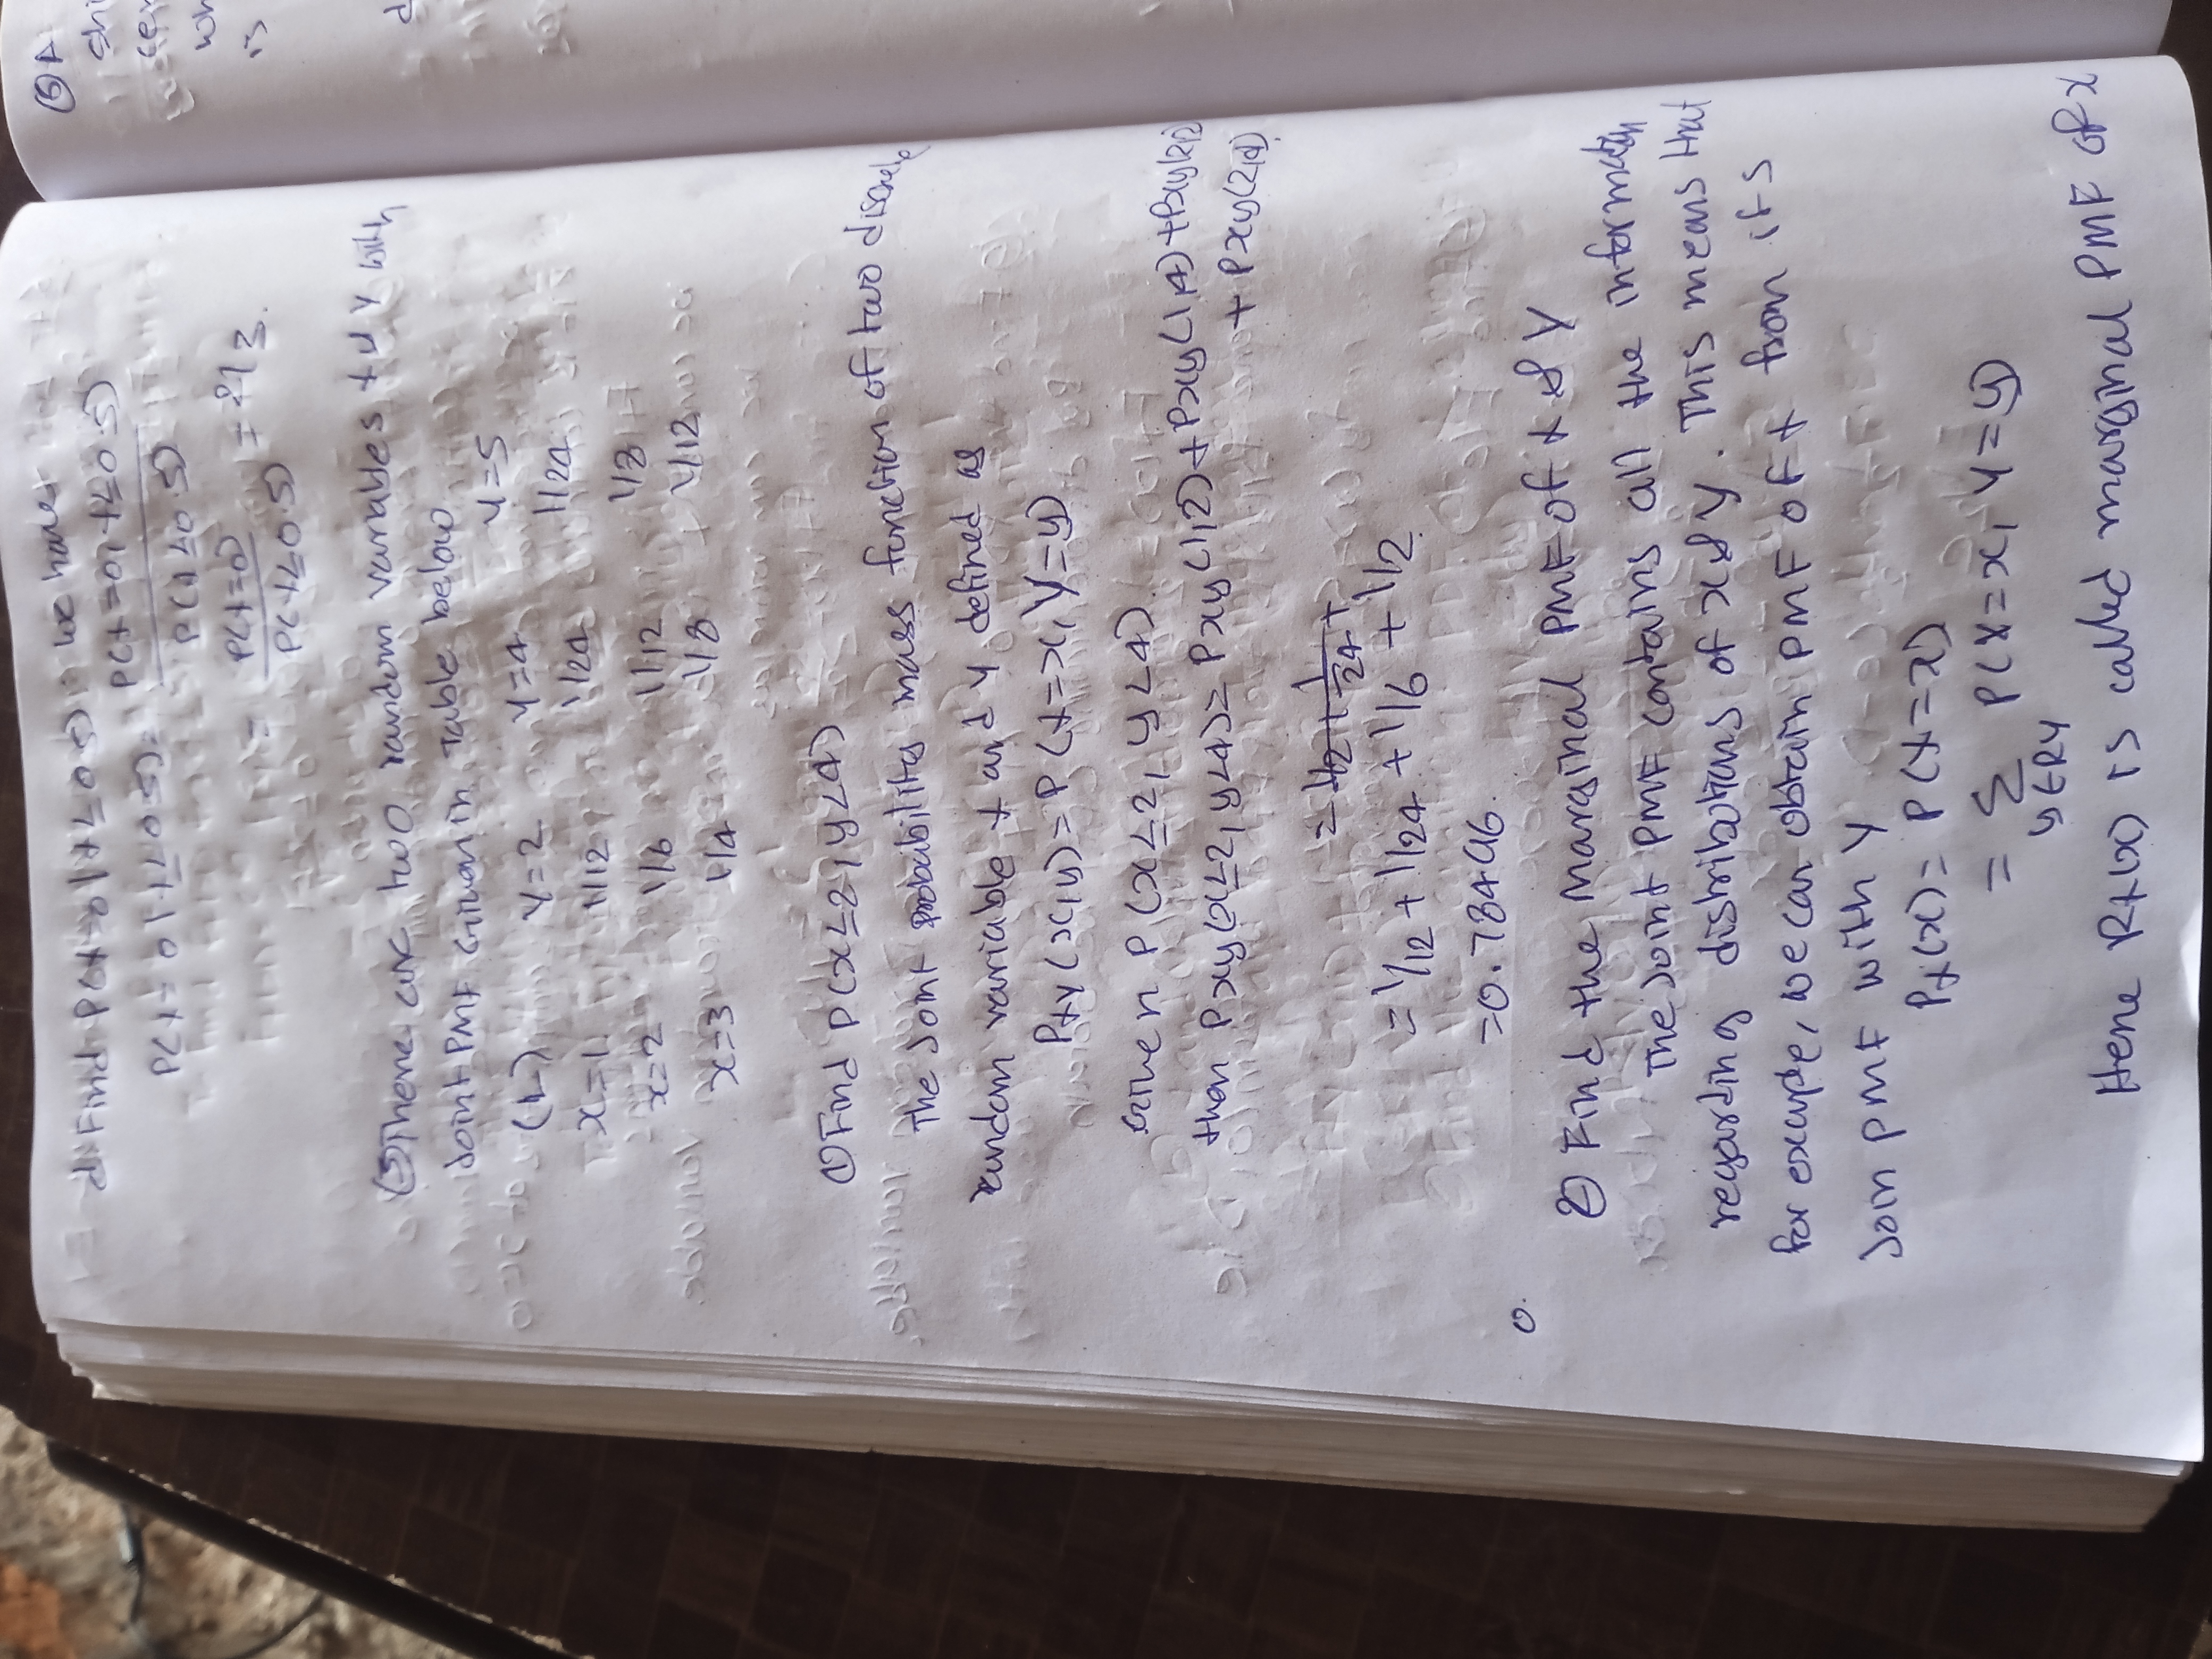 d) Find P(X=0|X≤0.5); we have
P(X=0|X≤0.5) = P(X=0, X≤0.5)
P(X≤0.5)
= P(X=0)
P(X≤0.5) = 2/3.
(5) There are two random variables X & Y with
joint PMF given in table below
y=2 y=4 y=5
x=1 1/12 1/24 1/24
x=2 1/6 1/12 1/8
x=3 1/4 1/8 1/12
① Find P(x≤2, y≤4)
The joint probability mass function of two discrete
random variable X and Y defined as
PXY(x,y) = P(X=x, Y=y)
given P(x≤2, y≤4)
then Pxy(x≤2, y≤4) = Pxy(1,2)+Pxy(1,4)+Pxy(2,2)
+ Pxy(2,4)
= 1/12 + 1/24 +
= 1/12 + 1/24 + 1/6 + 1/2
= 0.78496.
0.
2) Find the marginal PMF of X & Y
The joint PMF contains all the information
regarding distributions of X & Y. This means that
for example, we can obtain PMF of X from its
Join PMF with Y
PX(x) = P(X=x)
= Σ P(X=x, Y=y)
y∈RY
Here PX(x) is called marginal PMF of X